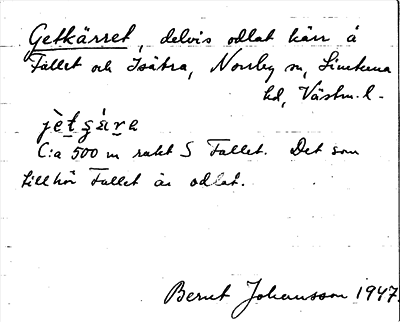 Getkärret, delvis odlat kärr å
Fallet och Isätra, Norrby sn, Simtuna
hd, Västm. l.
jètşár̲a
C:a 500 m rakt S Fallet. Det som
tillhör Fallet är odlat.
Bernt Johansson 1947.